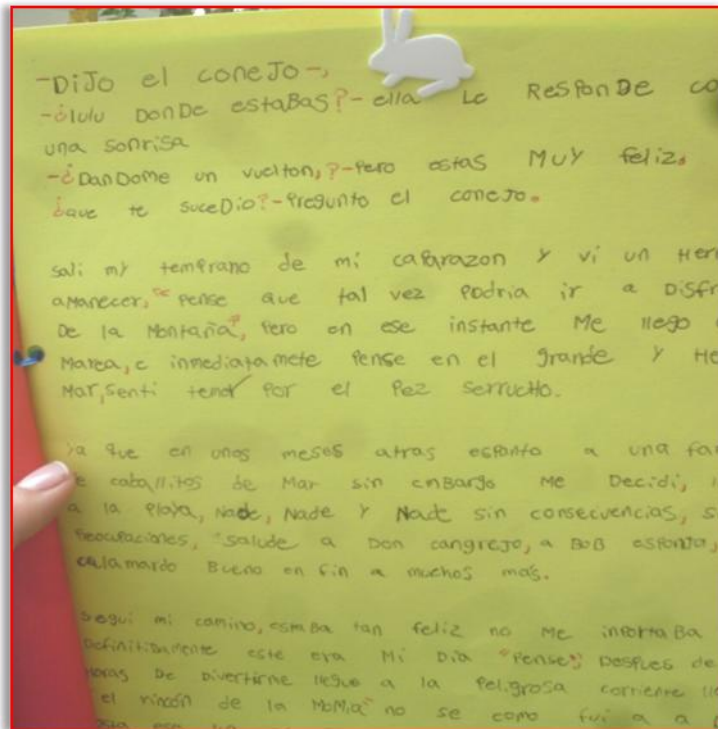 -DiJo el coneJo-,
-¿lulu DonDe estaBas?-ella Le ResPonDe co
una sonrisa
-¿DanDome un vuelton,?-Pero estas MUY feliz.
¿que te suceDio?-Pregunto el coneJo.
sali my temPrano de mi caParazon y vi un Her
aManecer,"Pense que tal vez Podria ir a DisFr
De la Montaña", Pero en ese instante Me llego
Marea, e inmediatamete Pense en el grande y He
Mar, senti temor Por el Pez serrucHo.
ya que en unos meses atras esPanto a una fa
e caballitos de Mar sin enBargo Me Decidi,
a la Playa, Nade, Nade y Nade sin consecuencias, s
Preocupaciones, salude a Don cangrejo, a BoB esPonja,
calamardo Bueno en fin a muchos mas.
segui mi camino, estaBa tan feliz no Me inPortaBa
Definitivamente este era Mi Dia "Pense", DesPues de
Horas De Divertirme llegue a la Peligrosa corriente
el rincón de la MoMia" no se como fui a a